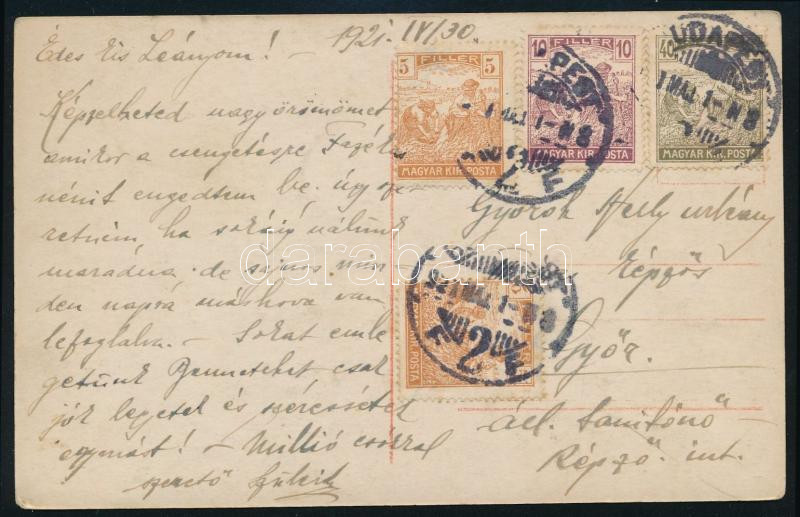 1921. IV/30.
Édes kis Leányom!
Képzelheted nagy örömömet
amikor a csengetésre Fazék
nénit engedtem be. Úgy sze
retném ha sokáig nálunk
maradna de sajnos min
den napra máshova van
lefoglalva. – Sokat emle
getünk Benneteket csak
jók legyetek és szeressétek
egymást! – Millió csókkal
szerető
5 FILLÉR
MAGYAR KIR. POSTA
10 FILLÉR 10
MAGYAR KIR. POSTA
40
MAGYAR KIR. POSTA
BUDAPEST
1 MAJ. 1 – N 8
Györök Nelly urleány
Képzős
Győr.
áll. tanítónő –
Képző. int.
darabanth.com